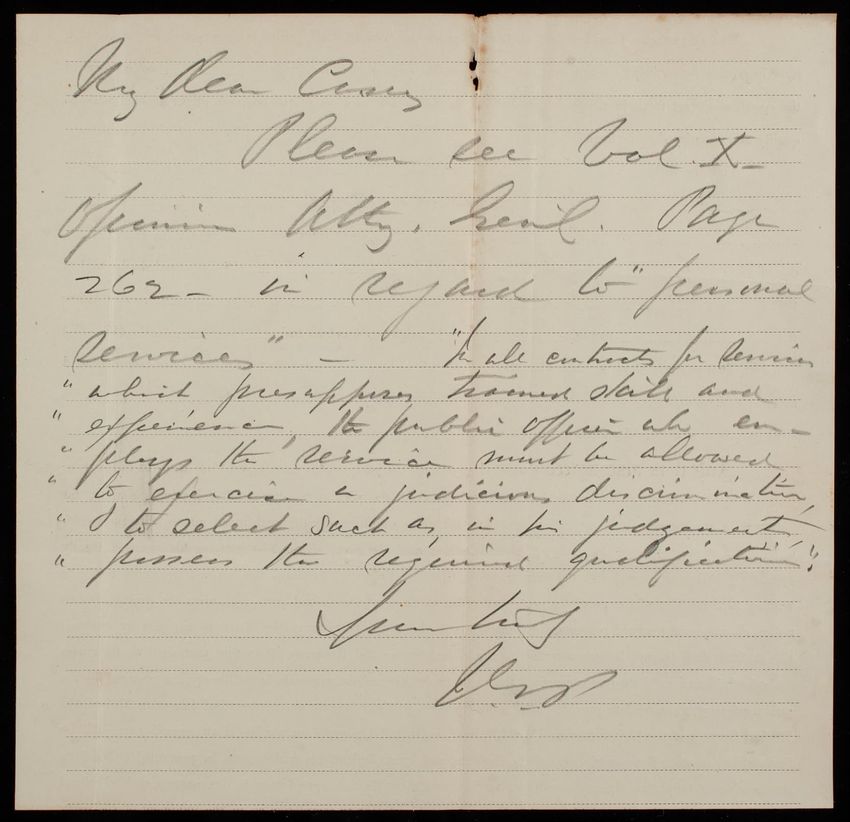 My Dear Casey
Please see Vol. X -
Opinion Atty. Genl. Page
262 - in regard to "personal
services" - "In all contracts for services
" which presupposes trained skill and
" experience, the public officer who em-
" ploys the service must be allowed
" to exercise a judicious discrimination,
" to select such as, in his judgement,
" possess the required qualifications".
Yours truly